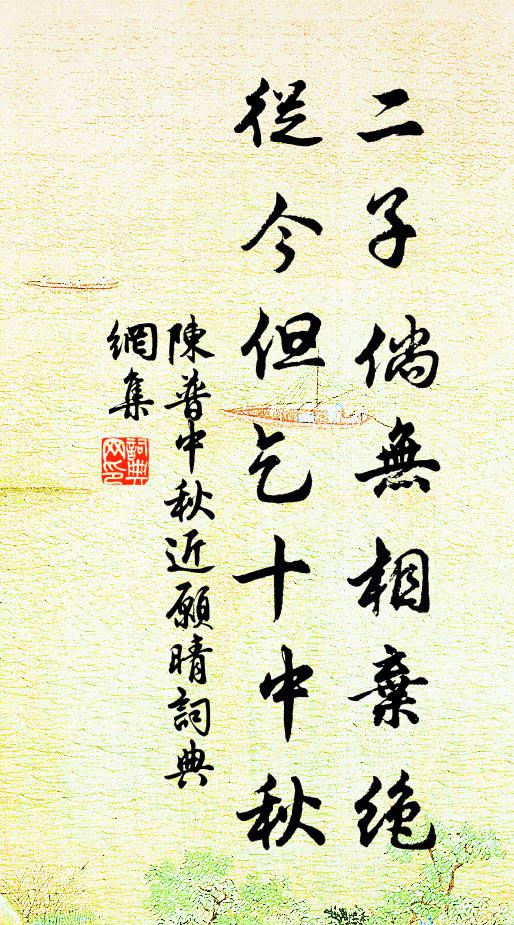 二子倘無相棄絶
從今但乞十中秋
陳普中秋近願晴詞典
網集
詞典
网印